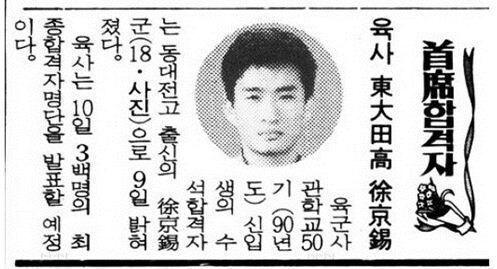 首席합격자
육사 東大田高 徐京錫
육군사
관학교50
기(90년
도) 신입
생의 수
석합격자
는 동대전고 출신의 徐京錫
군(18·사진)으로 9일 밝혀
졌다.
육사는 10일 3백명의 최
종합격자명단을 발표할 예정
이다.